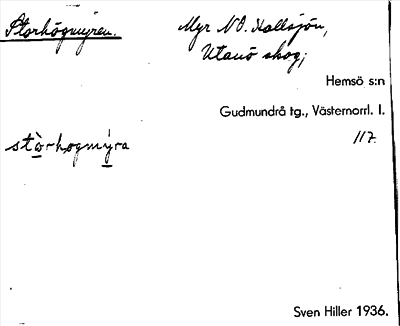 Storhögmyren.
Myr NO. Hallsjön,
Utanö skog;
Hemsö s:n
Gudmundrå tg., Västernorrl. l.
117.
stòrhogmýra
Sven Hiller 1936.